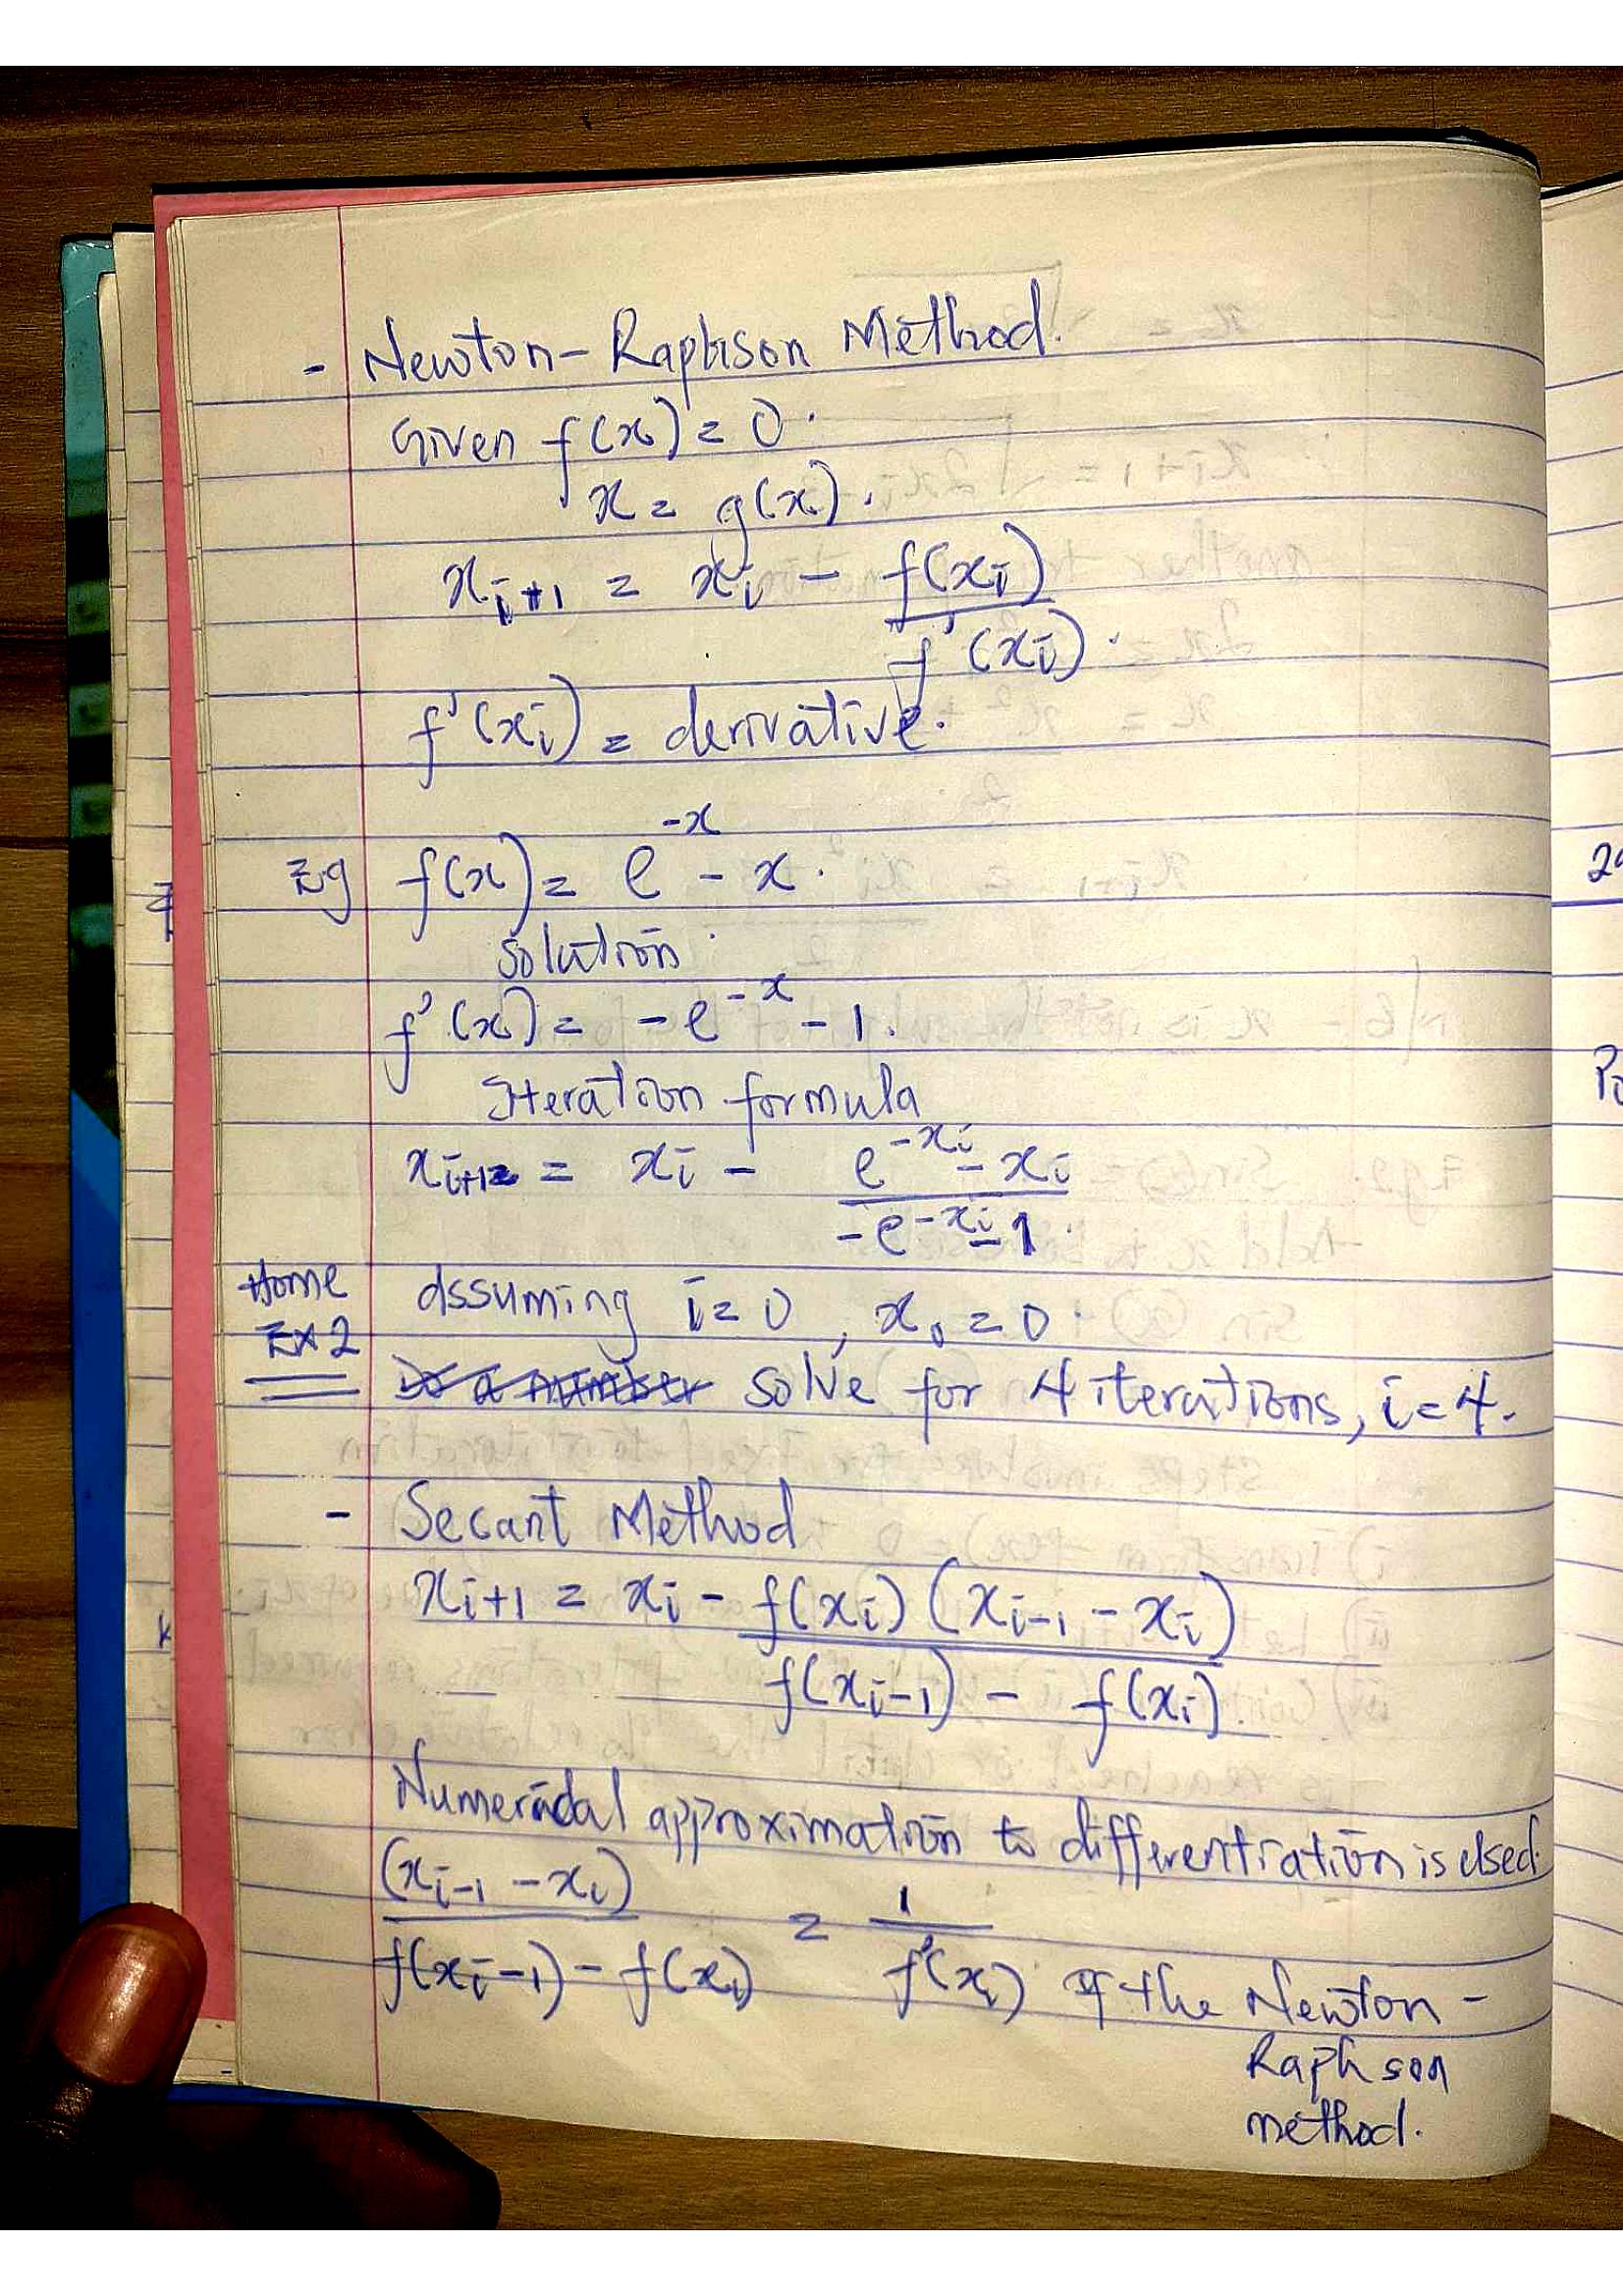 - Newton-Raphson Method.
Given f(x) = 0.
x = g(x).
x_{i+1} = x_i - f(x_i)
f'(x_i).
f'(x_i) = derivative.
Eg f(x) = e^{-x} - x.
solution.
f'(x) = -e^{-x} - 1.
Iteration formula
x_{i+1} = x_i - e^{-x_i} - x_i
-e^{-x_i} - 1.
Home
Ex 2
Assuming i = 0, x_0 = 0.
solve for 4 iterations, i = 4.
- Secant Method
x_{i+1} = x_i - f(x_i) (x_{i-1} - x_i)
f(x_{i-1}) - f(x_i).
Numerical approximation to differentiation is used.
(x_{i-1} - x_i)
f(x_{i-1}) - f(x_i) = 1
f'(x_i) of the Newton-
Raphson
method.